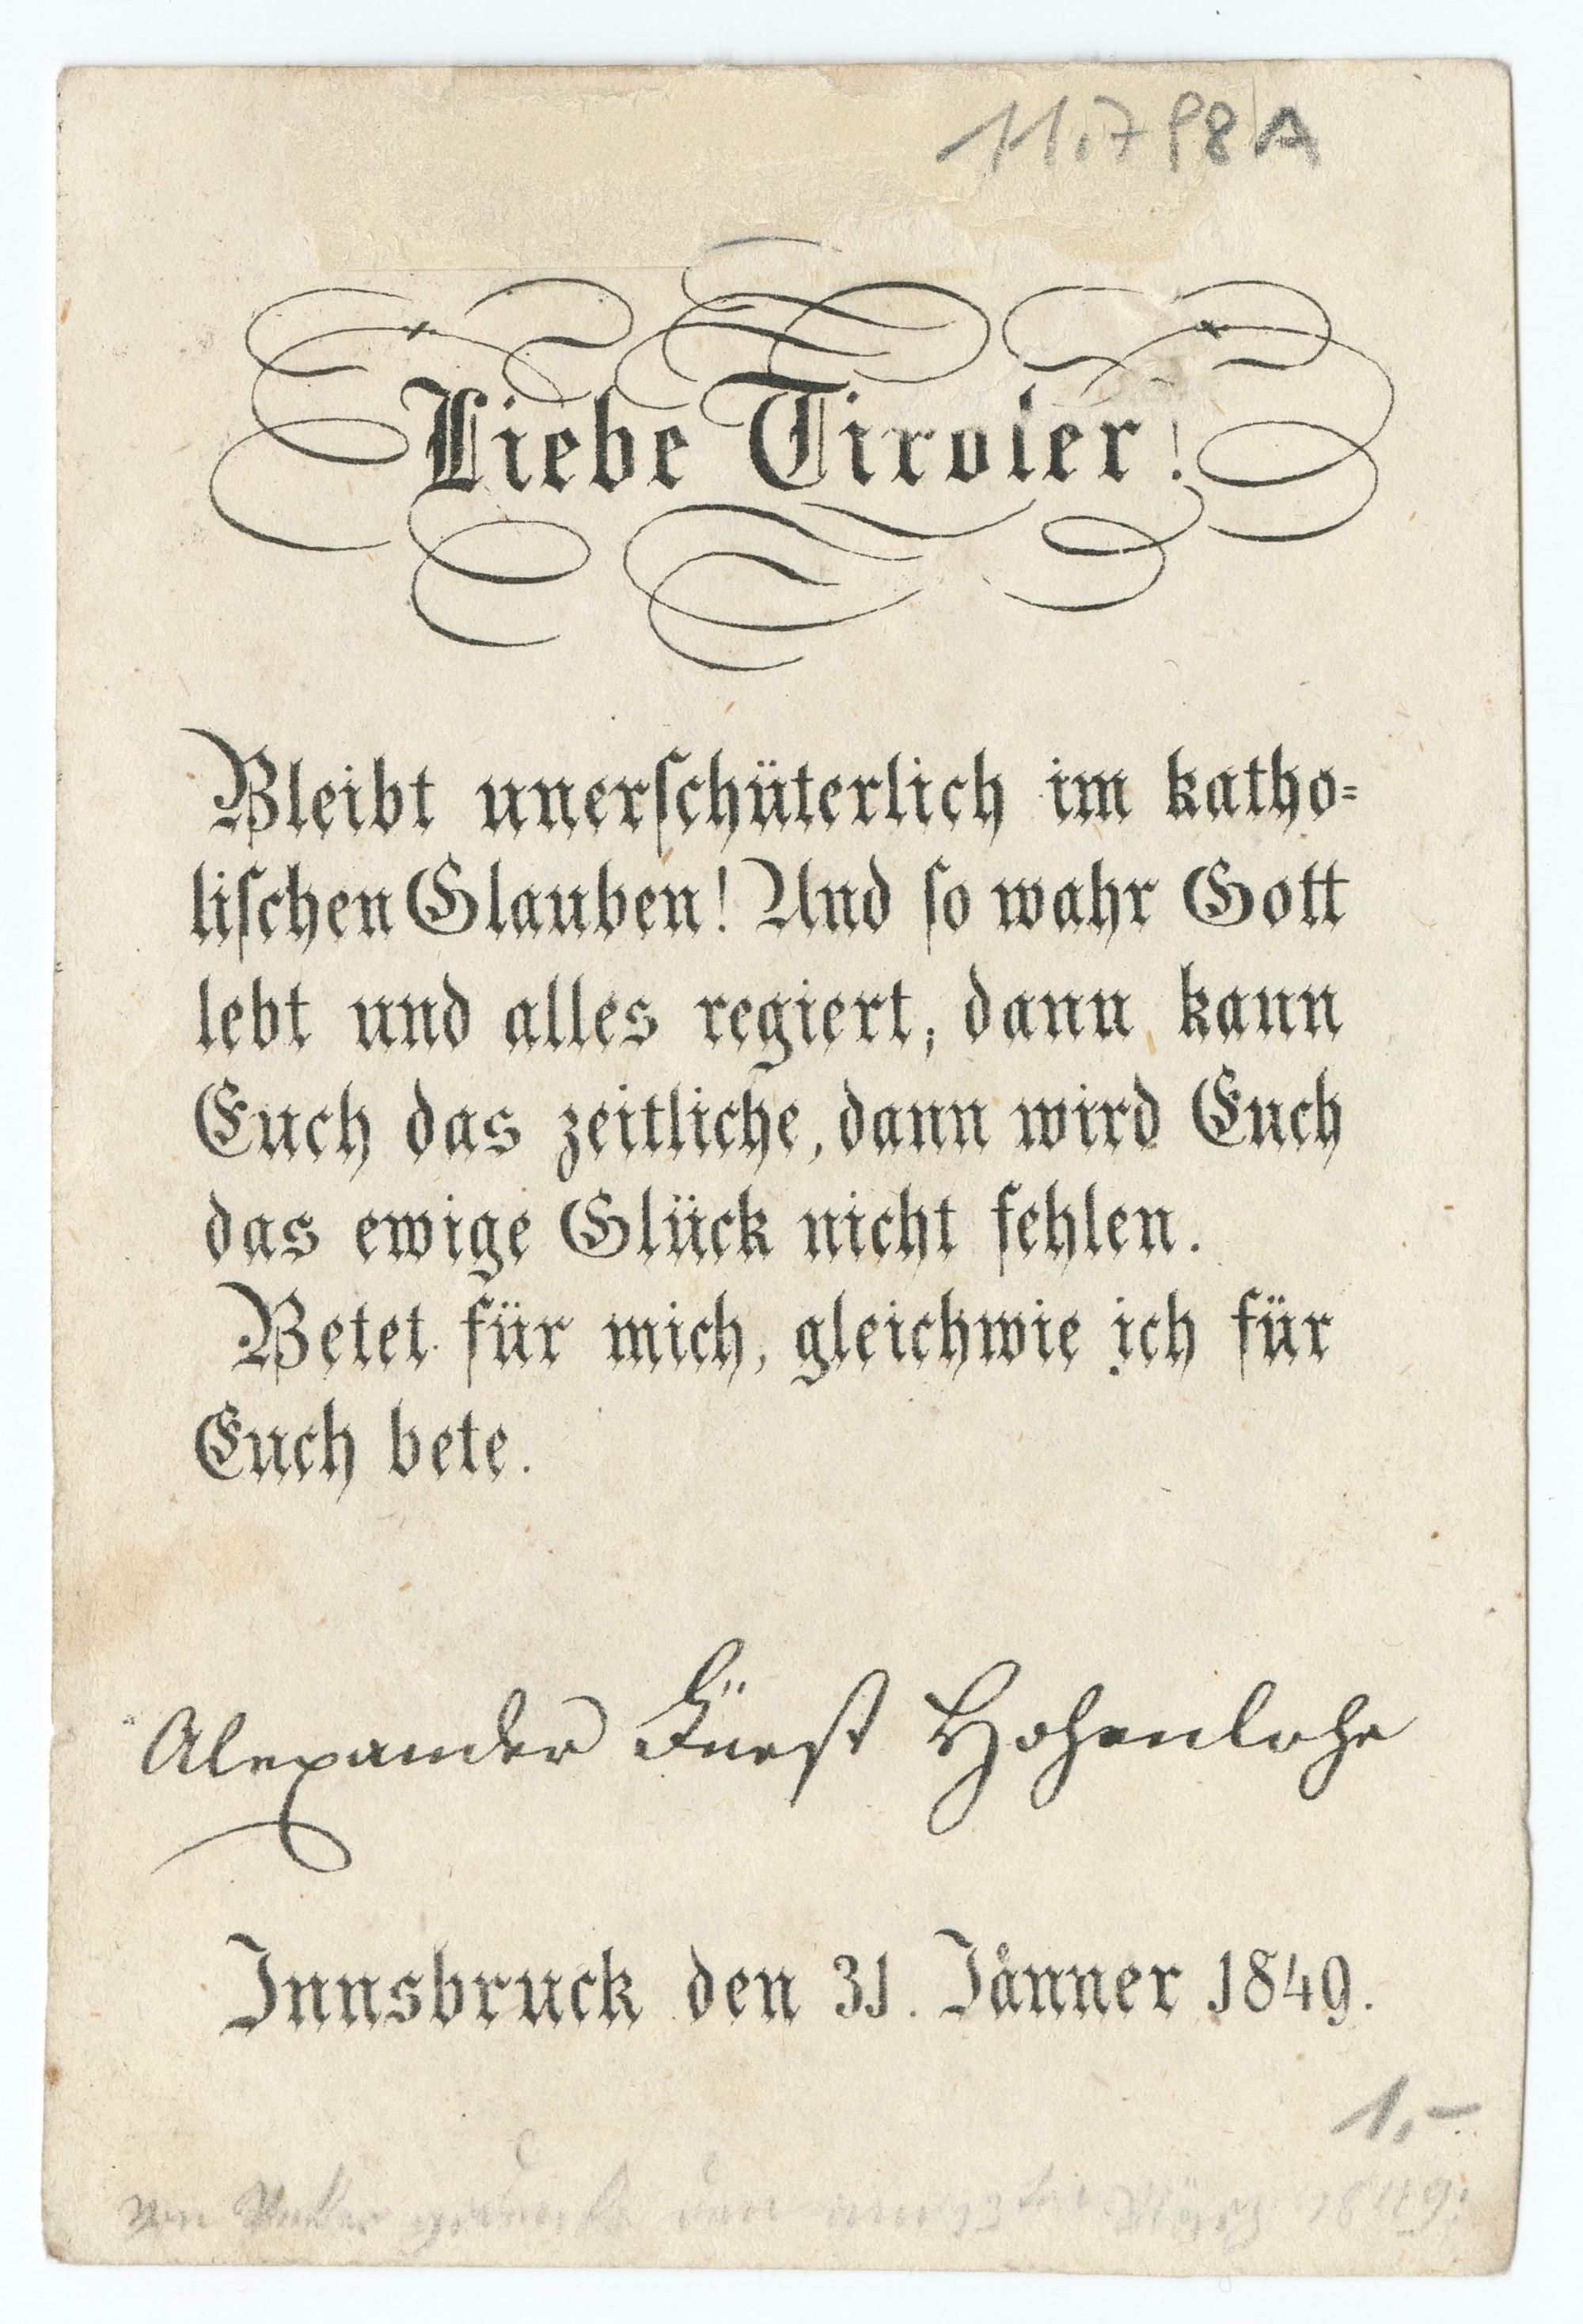 11.798A
Liebe Tiroler!
Bleibt unerſchüterlich im katho=
liſchen Glauben! Und ſo wahr Gott
lebt und alles regiert, dann kann
Euch das zeitliche, dann wird Euch
das ewige Glück nicht fehlen.
Betet für mich, gleichwie ich für
Euch bete.
Alexander Fürst Hohenlohe
Innsbruck den 31. Jänner 1849.
1.-
von März 1849.